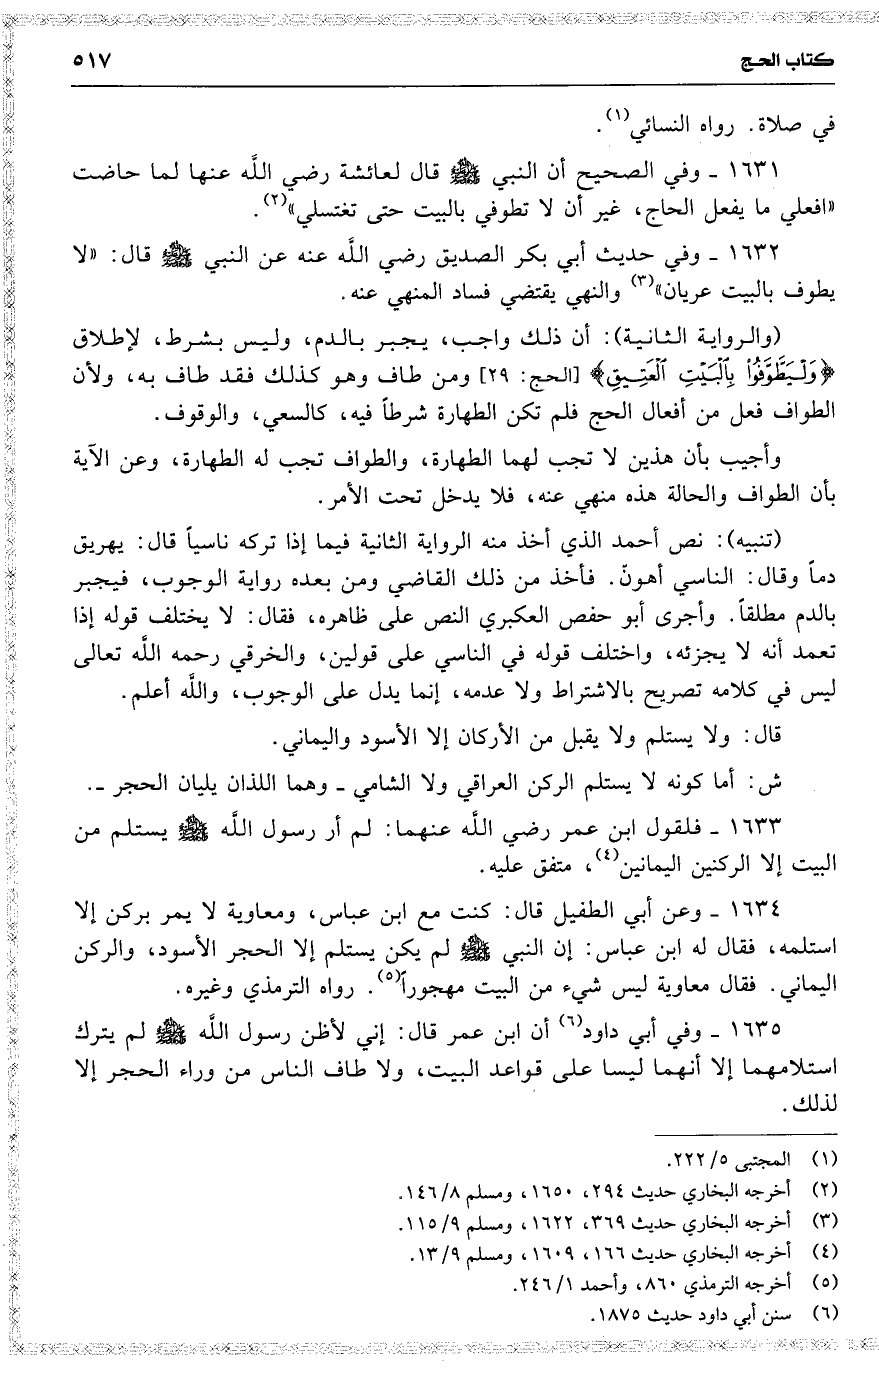 كتاب الحج ٥١٧
في صلاة. رواه النسائي(١).
١٦٣١ ـ وفي الصحيح أن النبي ﷺ قال لعائشة رضي اللَّه عنها لما حاضت
«افعلي ما يفعل الحاج، غير أن لا تطوفي بالبيت حتى تغتسلي»(٢).
١٦٣٢ ـ وفي حديث أبي بكر الصديق رضي اللَّه عنه عن النبي ﷺ قال: «لا
يطوف بالبيت عريان»(٣) والنهي يقتضي فساد المنهي عنه.
(والرواية الثانية): أن ذلك واجب، يجبر بالدم، وليس بشرط، لإطلاق
﴿وَلْيَطَّوَّفُوا۟ بِٱلْبَيْتِ ٱلْعَتِيقِ﴾ [الحج: ٢٩] ومن طاف وهو كذلك فقد طاف به، ولأن
الطواف فعل من أفعال الحج فلم تكن الطهارة شرطاً فيه، كالسعي، والوقوف.
وأجيب بأن هذين لا تجب لهما الطهارة، والطواف تجب له الطهارة، وعن الآية
بأن الطواف والحالة هذه منهي عنه، فلا يدخل تحت الأمر.
(تنبيه): نص أحمد الذي أخذ منه الرواية الثانية فيما إذا تركه ناسياً قال: يهريق
دماً وقال: الناسي أهونّ. فأخذ من ذلك القاضي ومن بعده رواية الوجوب، فيجبر
بالدم مطلقاً. وأجرى أبو حفص العكبري النص على ظاهره، فقال: لا يختلف قوله إذا
تعمد أنه لا يجزئه، واختلف قوله في الناسي على قولين، والخرقي رحمه اللَّه تعالى
ليس في كلامه تصريح بالاشتراط ولا عدمه، إنما يدل على الوجوب، واللَّه أعلم.
قال: ولا يستلم ولا يقبل من الأركان إلا الأسود واليماني.
ش: أما كونه لا يستلم الركن العراقي ولا الشامي ـ وهما اللذان يليان الحجر ـ.
١٦٣٣ ـ فلقول ابن عمر رضي اللَّه عنهما: لم أر رسول اللَّه ﷺ يستلم من
البيت إلا الركنين اليمانين(٤)، متفق عليه.
١٦٣٤ ـ وعن أبي الطفيل قال: كنت مع ابن عباس، ومعاوية لا يمر بركن إلا
استلمه، فقال له ابن عباس: إن النبي ﷺ لم يكن يستلم إلا الحجر الأسود، والركن
اليماني. فقال معاوية ليس شيء من البيت مهجوراً(٥). رواه الترمذي وغيره.
١٦٣٥ ـ وفي أبي داود(٦) أن ابن عمر قال: إني لأظن رسول اللَّه ﷺ لم يترك
استلامهما إلا أنهما ليسا على قواعد البيت، ولا طاف الناس من وراء الحجر إلا
لذلك.
(١) المجتبى ٥/ ٢٢٢.
(٢) أخرجه البخاري حديث ٢٩٤، ١٦٥٠، ومسلم ٨/ ١٤٦.
(٣) أخرجه البخاري حديث ٣٦٩، ١٦٢٢، ومسلم ٩/ ١١٥.
(٤) أخرجه البخاري حديث ١٦٦، ١٦٠٩، ومسلم ٩/ ١٣.
(٥) أخرجه الترمذي ٨٦٠، وأحمد ١/ ٢٤٦.
(٦) سنن أبي داود حديث ١٨٧٥.